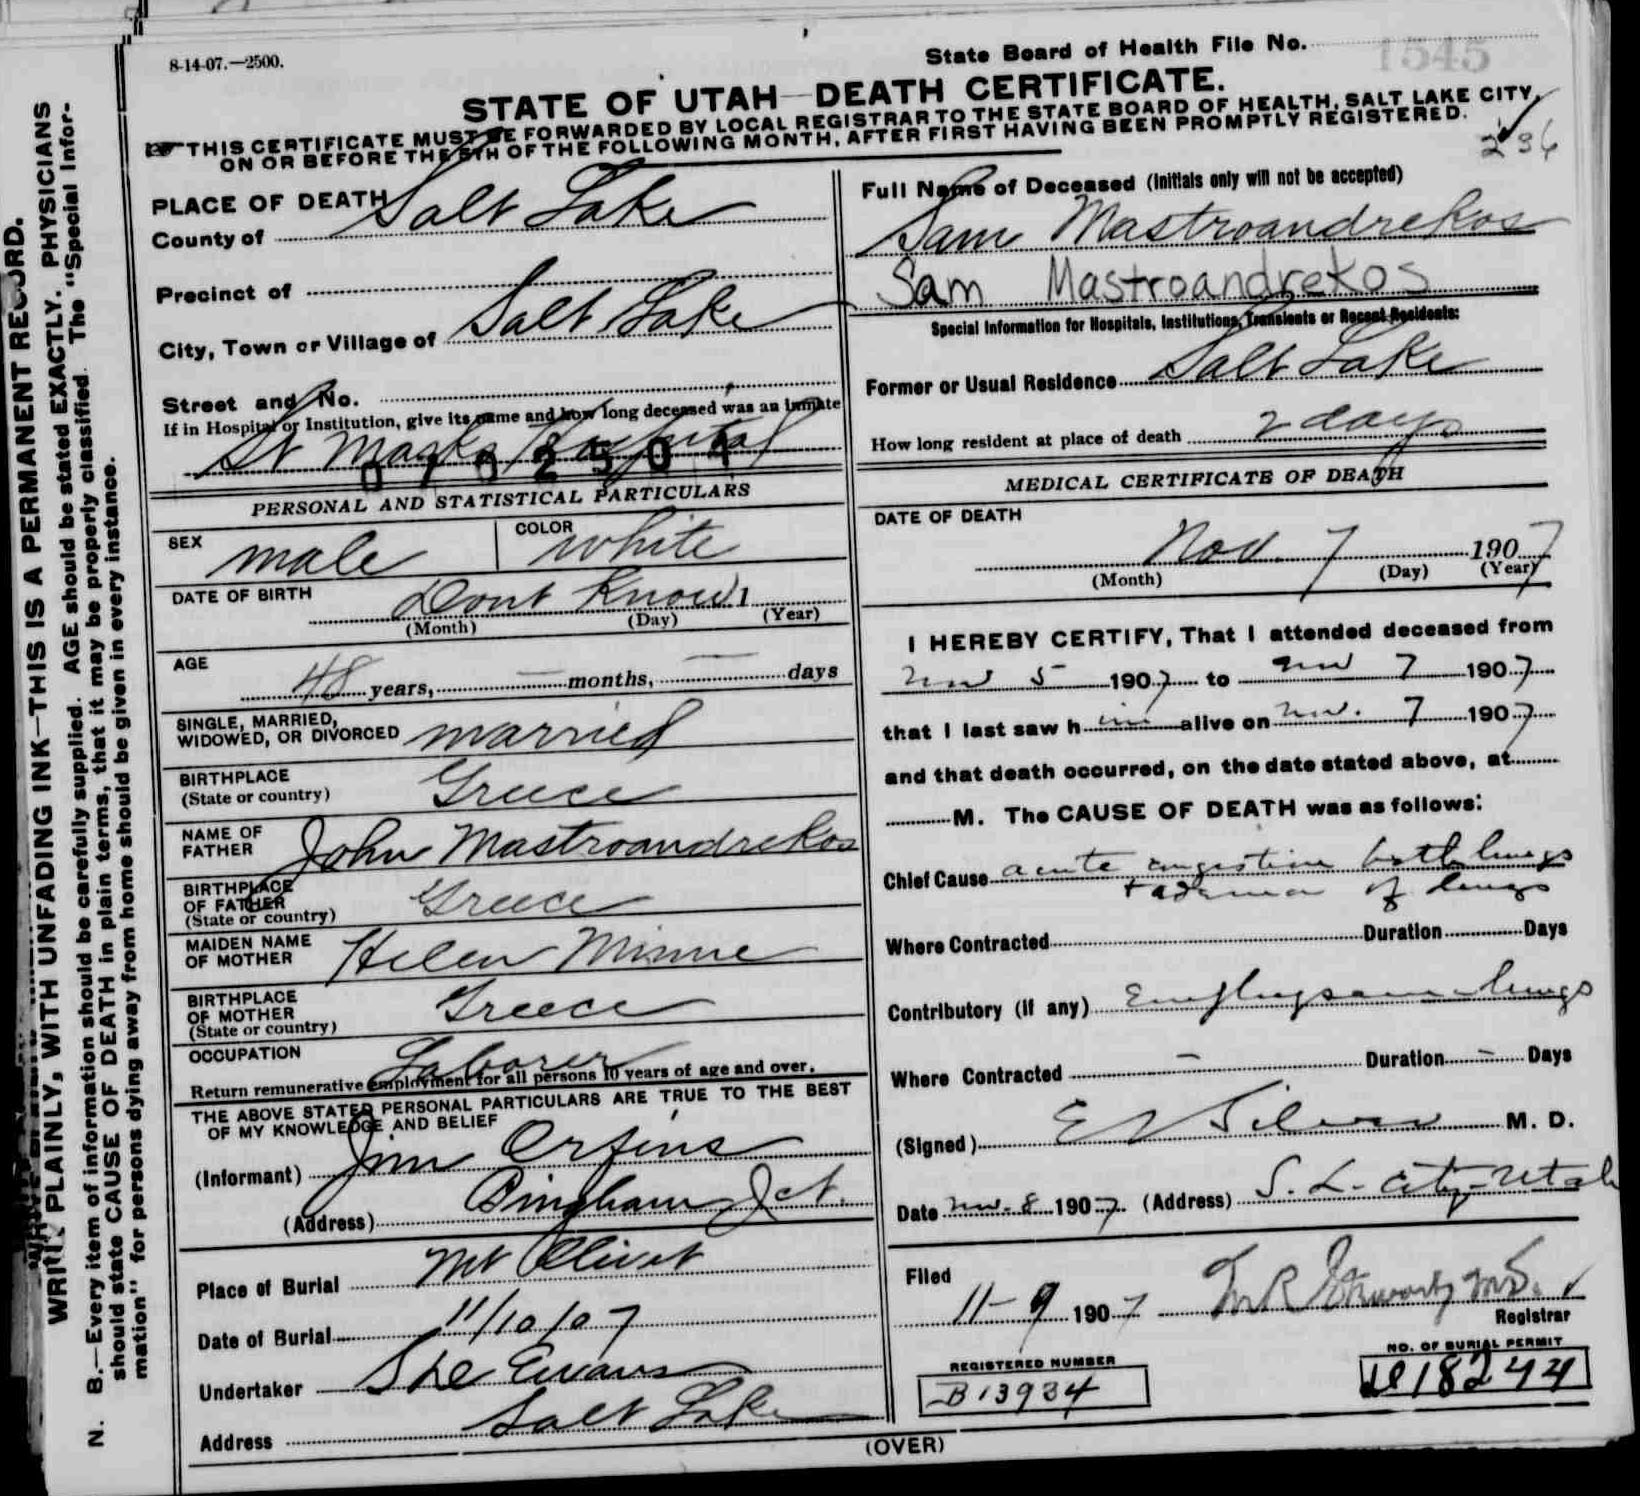 8-14-07.—2500.
State Board of Health File No. 1545
STATE OF UTAH—DEATH CERTIFICATE.
THIS CERTIFICATE MUST BE FORWARDED BY LOCAL REGISTRAR TO THE STATE BOARD OF HEALTH, SALT LAKE CITY,
ON OR BEFORE THE 5TH OF THE FOLLOWING MONTH, AFTER FIRST HAVING BEEN PROMPTLY REGISTERED.
236
PLACE OF DEATH
County of Salt Lake
Precinct of
City, Town or Village of Salt Lake
Street and No.
If in Hospital or Institution, give its name and how long deceased was an inmate
St Marks Hospital
PERSONAL AND STATISTICAL PARTICULARS
SEX male COLOR white
DATE OF BIRTH Dont Know
(Month) (Day) (Year)
AGE 48 years, — months, — days
SINGLE, MARRIED,
WIDOWED, OR DIVORCED married
BIRTHPLACE
(State or country) Greece
NAME OF
FATHER John Mastroandrekos
BIRTHPLACE
OF FATHER
(State or country) Greece
MAIDEN NAME
OF MOTHER Helen Minne
BIRTHPLACE
OF MOTHER
(State or country) Greece
OCCUPATION Laborer
Return remunerative employment for all persons 10 years of age and over.
THE ABOVE STATED PERSONAL PARTICULARS ARE TRUE TO THE BEST
OF MY KNOWLEDGE AND BELIEF
(Informant) Jim Orfins
(Address) Bingham Jct.
Place of Burial Mt Olivet
Date of Burial 11/10/07
Undertaker Evans
Address Salt Lake
Full Name of Deceased (Initials only will not be accepted)
Sam Mastroandrekos
Sam Mastroandrekos
Special Information for Hospitals, Institutions, Transients or Recent Residents:
Former or Usual Residence Salt Lake
How long resident at place of death 2 days
MEDICAL CERTIFICATE OF DEATH
DATE OF DEATH
Nov. 7 1907
(Month) (Day) (Year)
I HEREBY CERTIFY, That I attended deceased from
Nov 5 1907 to Nov 7 1907
that I last saw him alive on Nov. 7 1907
and that death occurred, on the date stated above, at
M. The CAUSE OF DEATH was as follows:
Chief Cause acute congestion both lungs
+ œdema of lungs
Where Contracted Duration Days
Contributory (if any) Emphysema lungs
Where Contracted — Duration — Days
(Signed) M. D.
Date Nov. 8 1907 (Address) S. L. City Utah
Filed
11-9 1907
Registrar
REGISTERED NUMBER
B13934
NO. OF BURIAL PERMIT
18244
(OVER)
WRITE PLAINLY, WITH UNFADING INK—THIS IS A PERMANENT RECORD.
N. B.—Every item of information should be carefully supplied. AGE should be stated EXACTLY. PHYSICIANS
should state CAUSE OF DEATH in plain terms, that it may be properly classified. The "Special Infor-
mation" for persons dying away from home should be given in every instance.